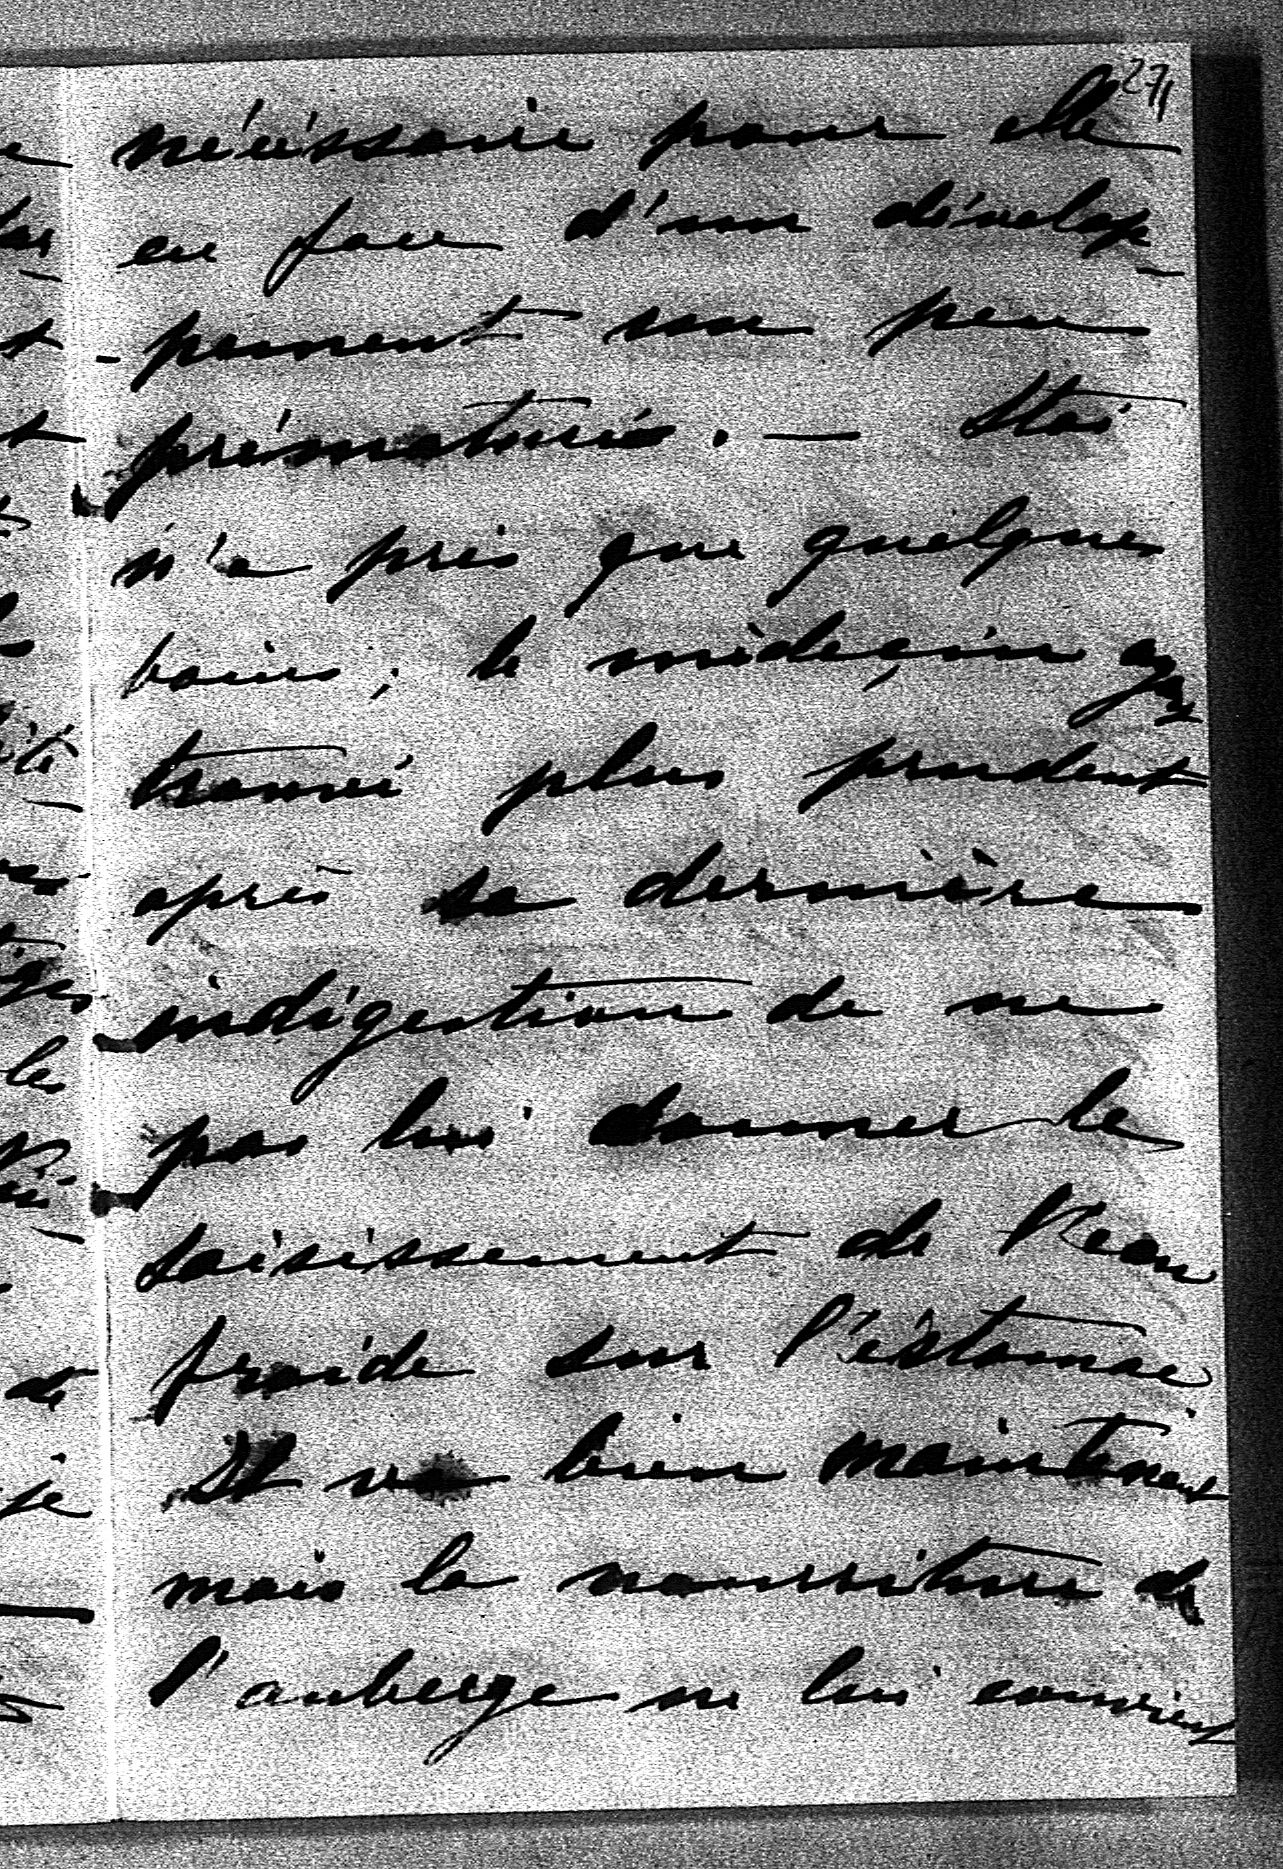 271
nécéssaire pour elle
en face d'un dévelop-
-pement un peu
prématuré. —
n'a pris que quelques
bains; le médeçin
trouvé plus prudent
après sa dernière
indigestion de ne
pas lui donner le
saisissement de l'eau
froide sur l'estomac
Il va bien maintenant
mais la nourriture de
l'auberge ne lui convient